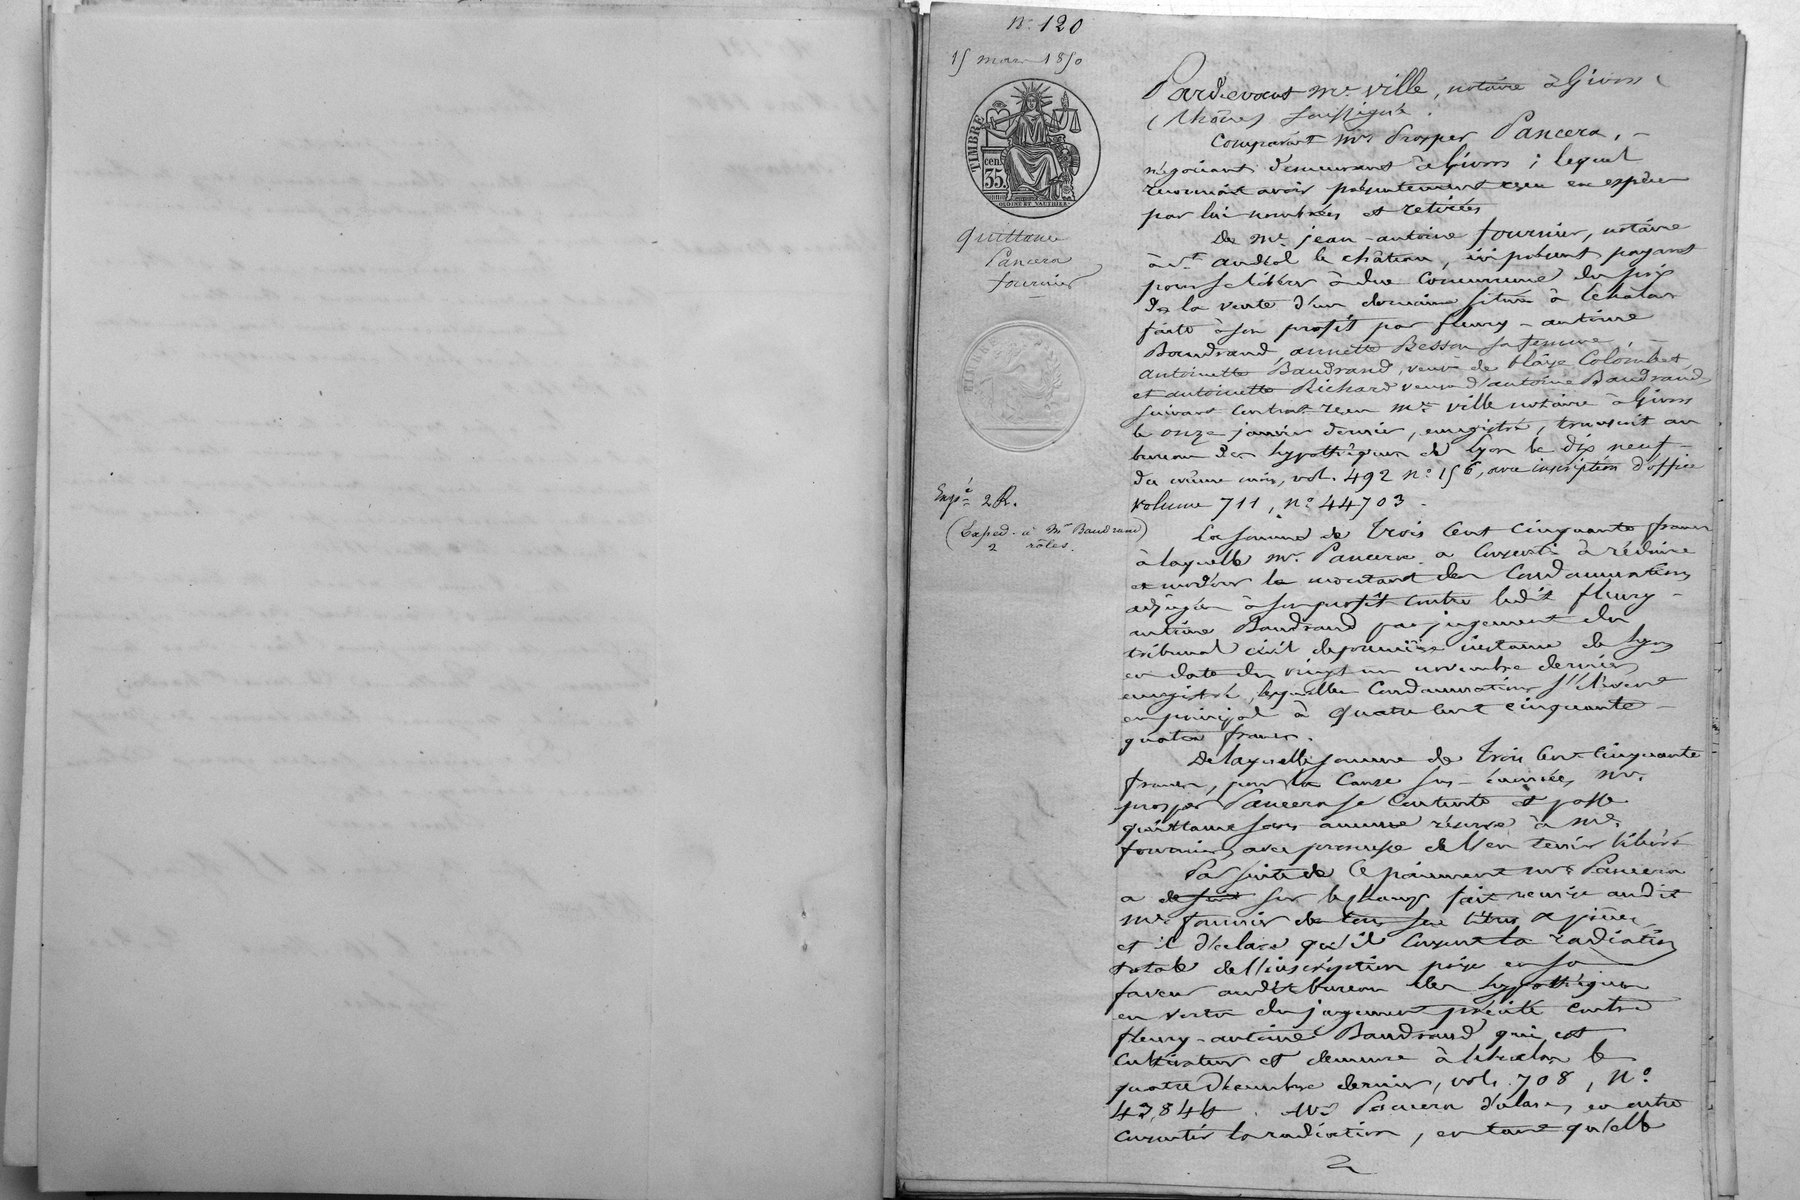 N° 120
15 mars 1850
TIMBRE
cen.
35.
ORDINE ET VAUTHIER.
Quittance
Pancera
fournier
TIMBRE
Exp.ée 2 R.
(Exped. à Mr Baudrand)
2 rôles.
Pardevant Me Ville, notaire à Givors
(Rhône) soussigné.
Comparait Mr Prosper Pancera,
négociant demeurant à Givors ; lequel
reconnait avoir présentement reçu en espèces
par lui nombrées et retirées
De Me jean-antoine fournier, notaire
à St andéol le château, ici présent payant
pour se libérer à due concurrence du prix
de la vente d'un domaine situé à Échalas
faite à son profit par fleury-antoine
Baudrand, annette Besson sa femme,
antoinette Baudrand, veuve de blaize Colombet
et antoinette Richard veuve d'antoine Baudrand,
suivant contrat reçu Me Ville notaire à Givors
le onze janvier dernier, enregistré, transcrit au
bureau des hypothèques de Lyon le dix neuf
du même mois, vol. 492 n° 156, avec inscription d'office
volume 711, n° 44703.
La somme de trois cent cinquante francs
à laquelle Mr Pancera a consenti à réduire
et modérer le montant des condamnations
adjugées à son profit contre ledit fleury-
antoine Baudrand par jugement du
tribunal civil de première instance de Lyon
en date du vingt un novembre dernier
enregistré, lesquelles condamnations s'élèvent
en principal à quatre cent cinquante-
quatre francs.
De laquelle somme de trois cent cinquante
francs, pour la cause sus-énoncée, Mr
prosper Pancera se contente et passe
quittance sans aucune réserve à Me
fournier, avec promesse de l'en tenir libéré
Par suite de ce paiement Mr Pancera
a de suite sur le champ fait remise audit
Me fournier de tous ses titres et pièces
et il déclare qu'il consent la radiation
totale de l'inscription prise en sa
faveur audit bureau des hypothèques
en vertu du jugement précité contre
fleury-antoine Baudrand qui est
cultivateur et demeure à Échalas le
quatre décembre dernier, vol. 708, N°
43,844. Mr Pancera déclare, en outre
consentir la radiation, en tant qu'elle
2